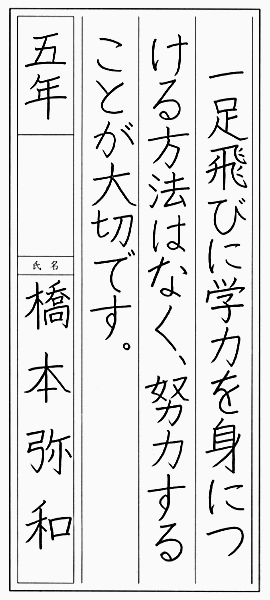 一足飛びに学力を身につ
ける方法はなく、努力する
ことが大切です。
五年
氏名
橋本弥和